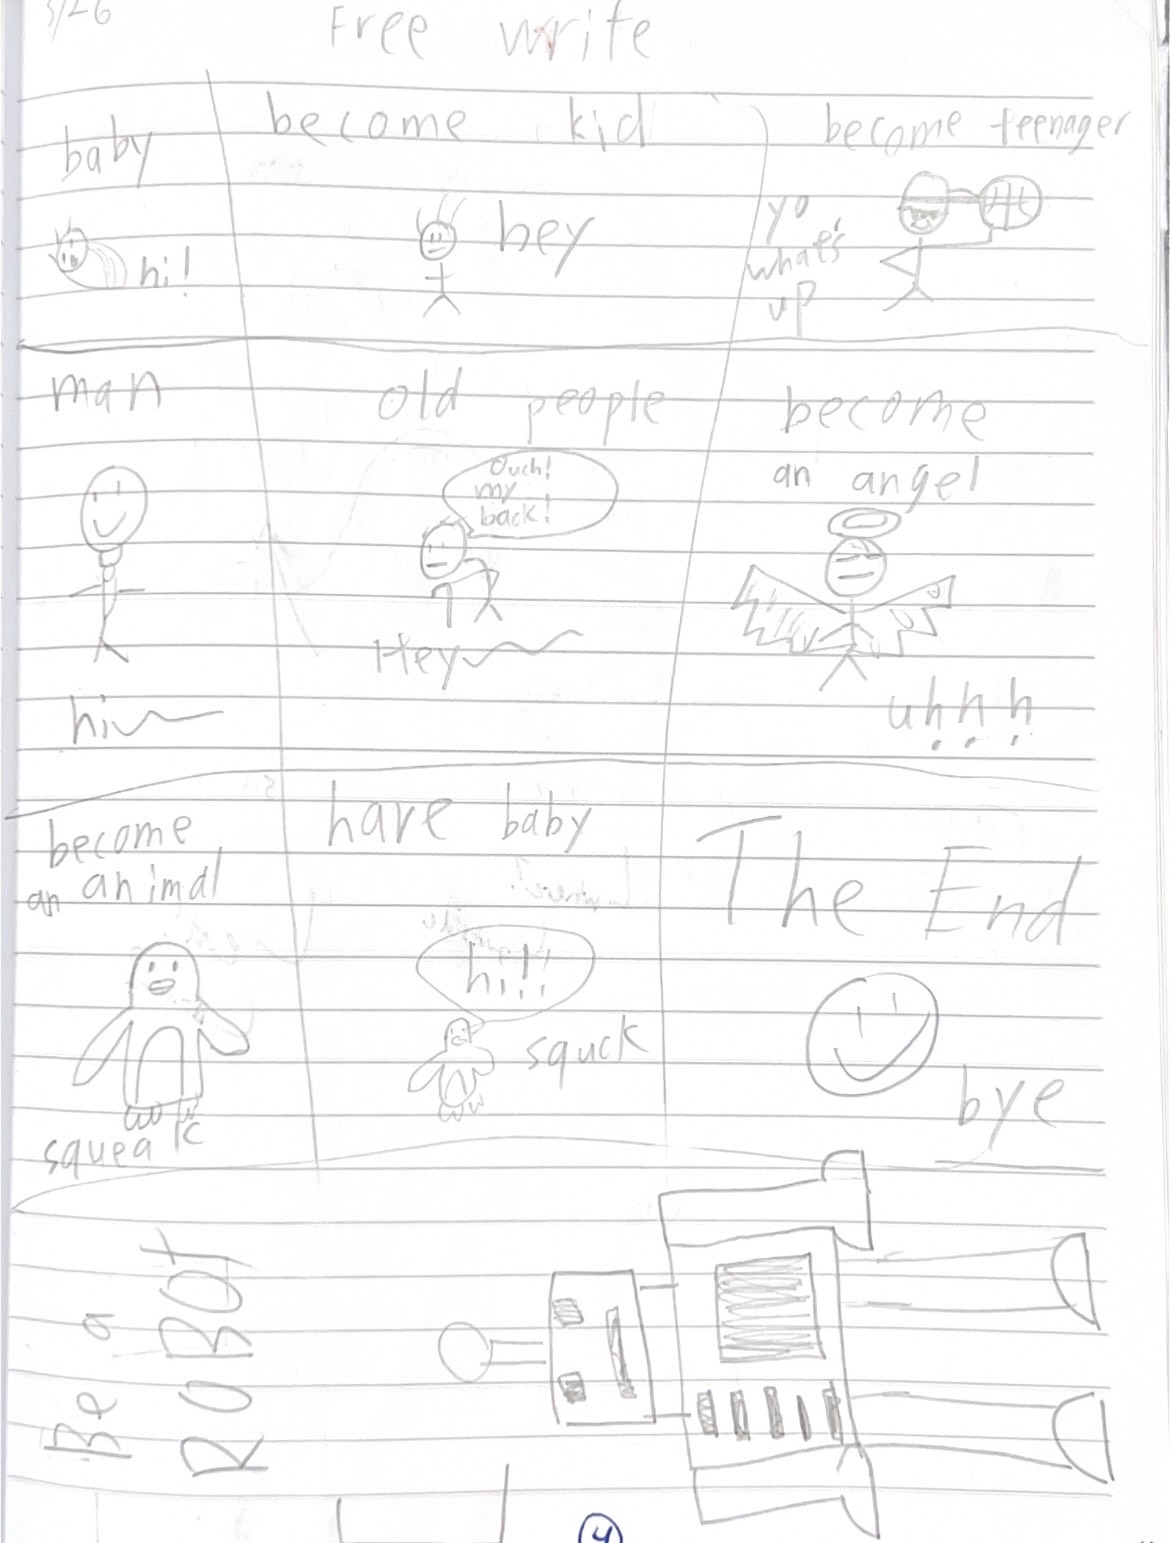 3/26
Free write
baby
hi!
become kid
hey
become teenager
yo
what's
up
man
hi
old people
Ouch!
my
back!
Hey
become
an angel
uhhh
become
an animal
squeak
have baby
hi!!
squck
The End
bye
Be a
ROBOt
4